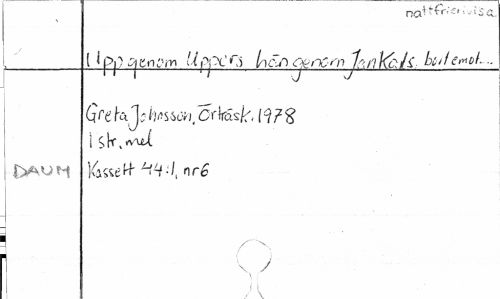 nattfrierivisa
Uppgenom Uppars hängenom JanKads, bort emot...
Greta Johnsson, Örträsk, 1978
1 str, mel
DAUM Kassett 44:1, nr 6